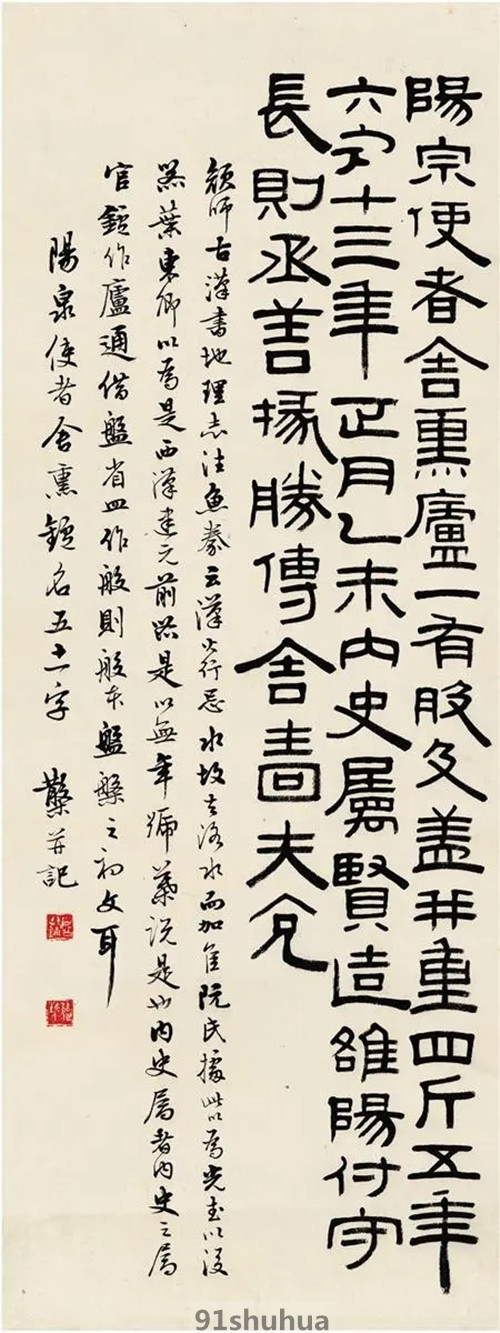 陽宗使者舍熏廬一有般及盖并重四斤五年
六安十三年正月乙未内史屬賢造雒陽付守
長則丞善掾勝傳舍嗇夫兌
顔師古漢書地理志注魚豢云漢火行忌水故去洛水而加隹阮氏據此以爲光武以後
器葉東卿以爲是西漢建元前器是以無年號葉説是也内史屬者内史之屬
官鑪作廬通借盤省皿作般則般本盤槃之初文耳
陽泉使者舍熏鑪名五十一字 并記
91shuhua